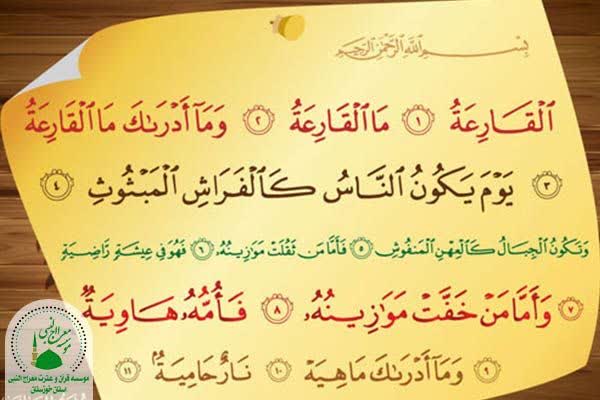 بِسْمِ اللَّهِ الرَّحْمَٰنِ الرَّحِيمِ
ٱلْقَارِعَةُ ١ مَا ٱلْقَارِعَةُ ٢ وَمَآ أَدْرَىٰكَ مَا ٱلْقَارِعَةُ
٣ يَوْمَ يَكُونُ ٱلنَّاسُ كَٱلْفَرَاشِ ٱلْمَبْثُوثِ ٤
وَتَكُونُ ٱلْجِبَالُ كَٱلْعِهْنِ ٱلْمَنفُوشِ ٥ فَأَمَّا مَن ثَقُلَتْ مَوَٰزِينُهُۥ ٦ فَهُوَ فِى عِيشَةٍ رَّاضِيَةٍ
٧ وَأَمَّا مَنْ خَفَّتْ مَوَٰزِينُهُۥ ٨ فَأُمُّهُۥ هَاوِيَةٌ
٩ وَمَآ أَدْرَىٰكَ مَا هِيَهْ ١٠ نَارٌ حَامِيَةٌۢ ١١
موسسه قرآن و عترت معراج النبی
استان خوزستان